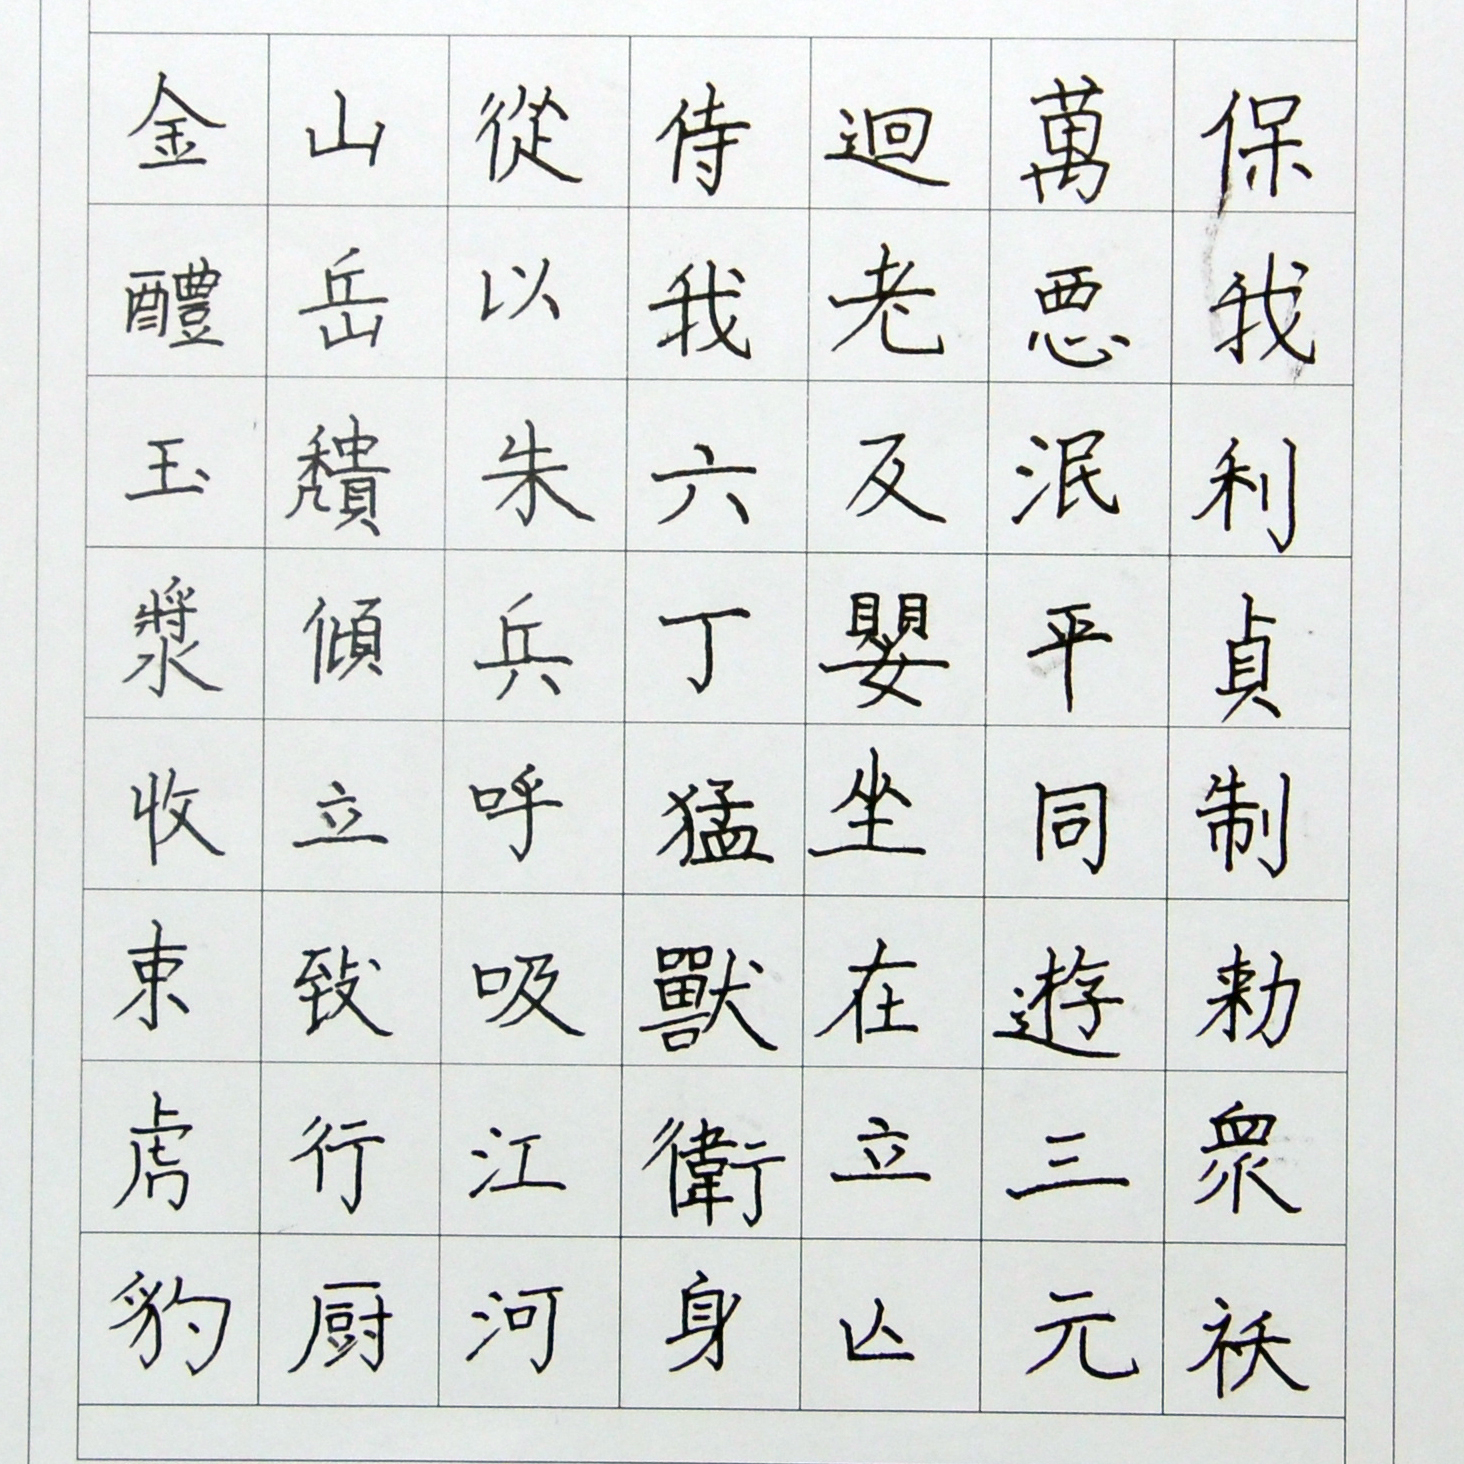 保我利貞制勑眾祅
萬悪泯平同遊三元
迴老反嬰坐在立亾
侍我六丁猛獸衛身
從以朱兵呼吸江河
山岳穨傾立致行厨
金醴玉漿收束虎豹